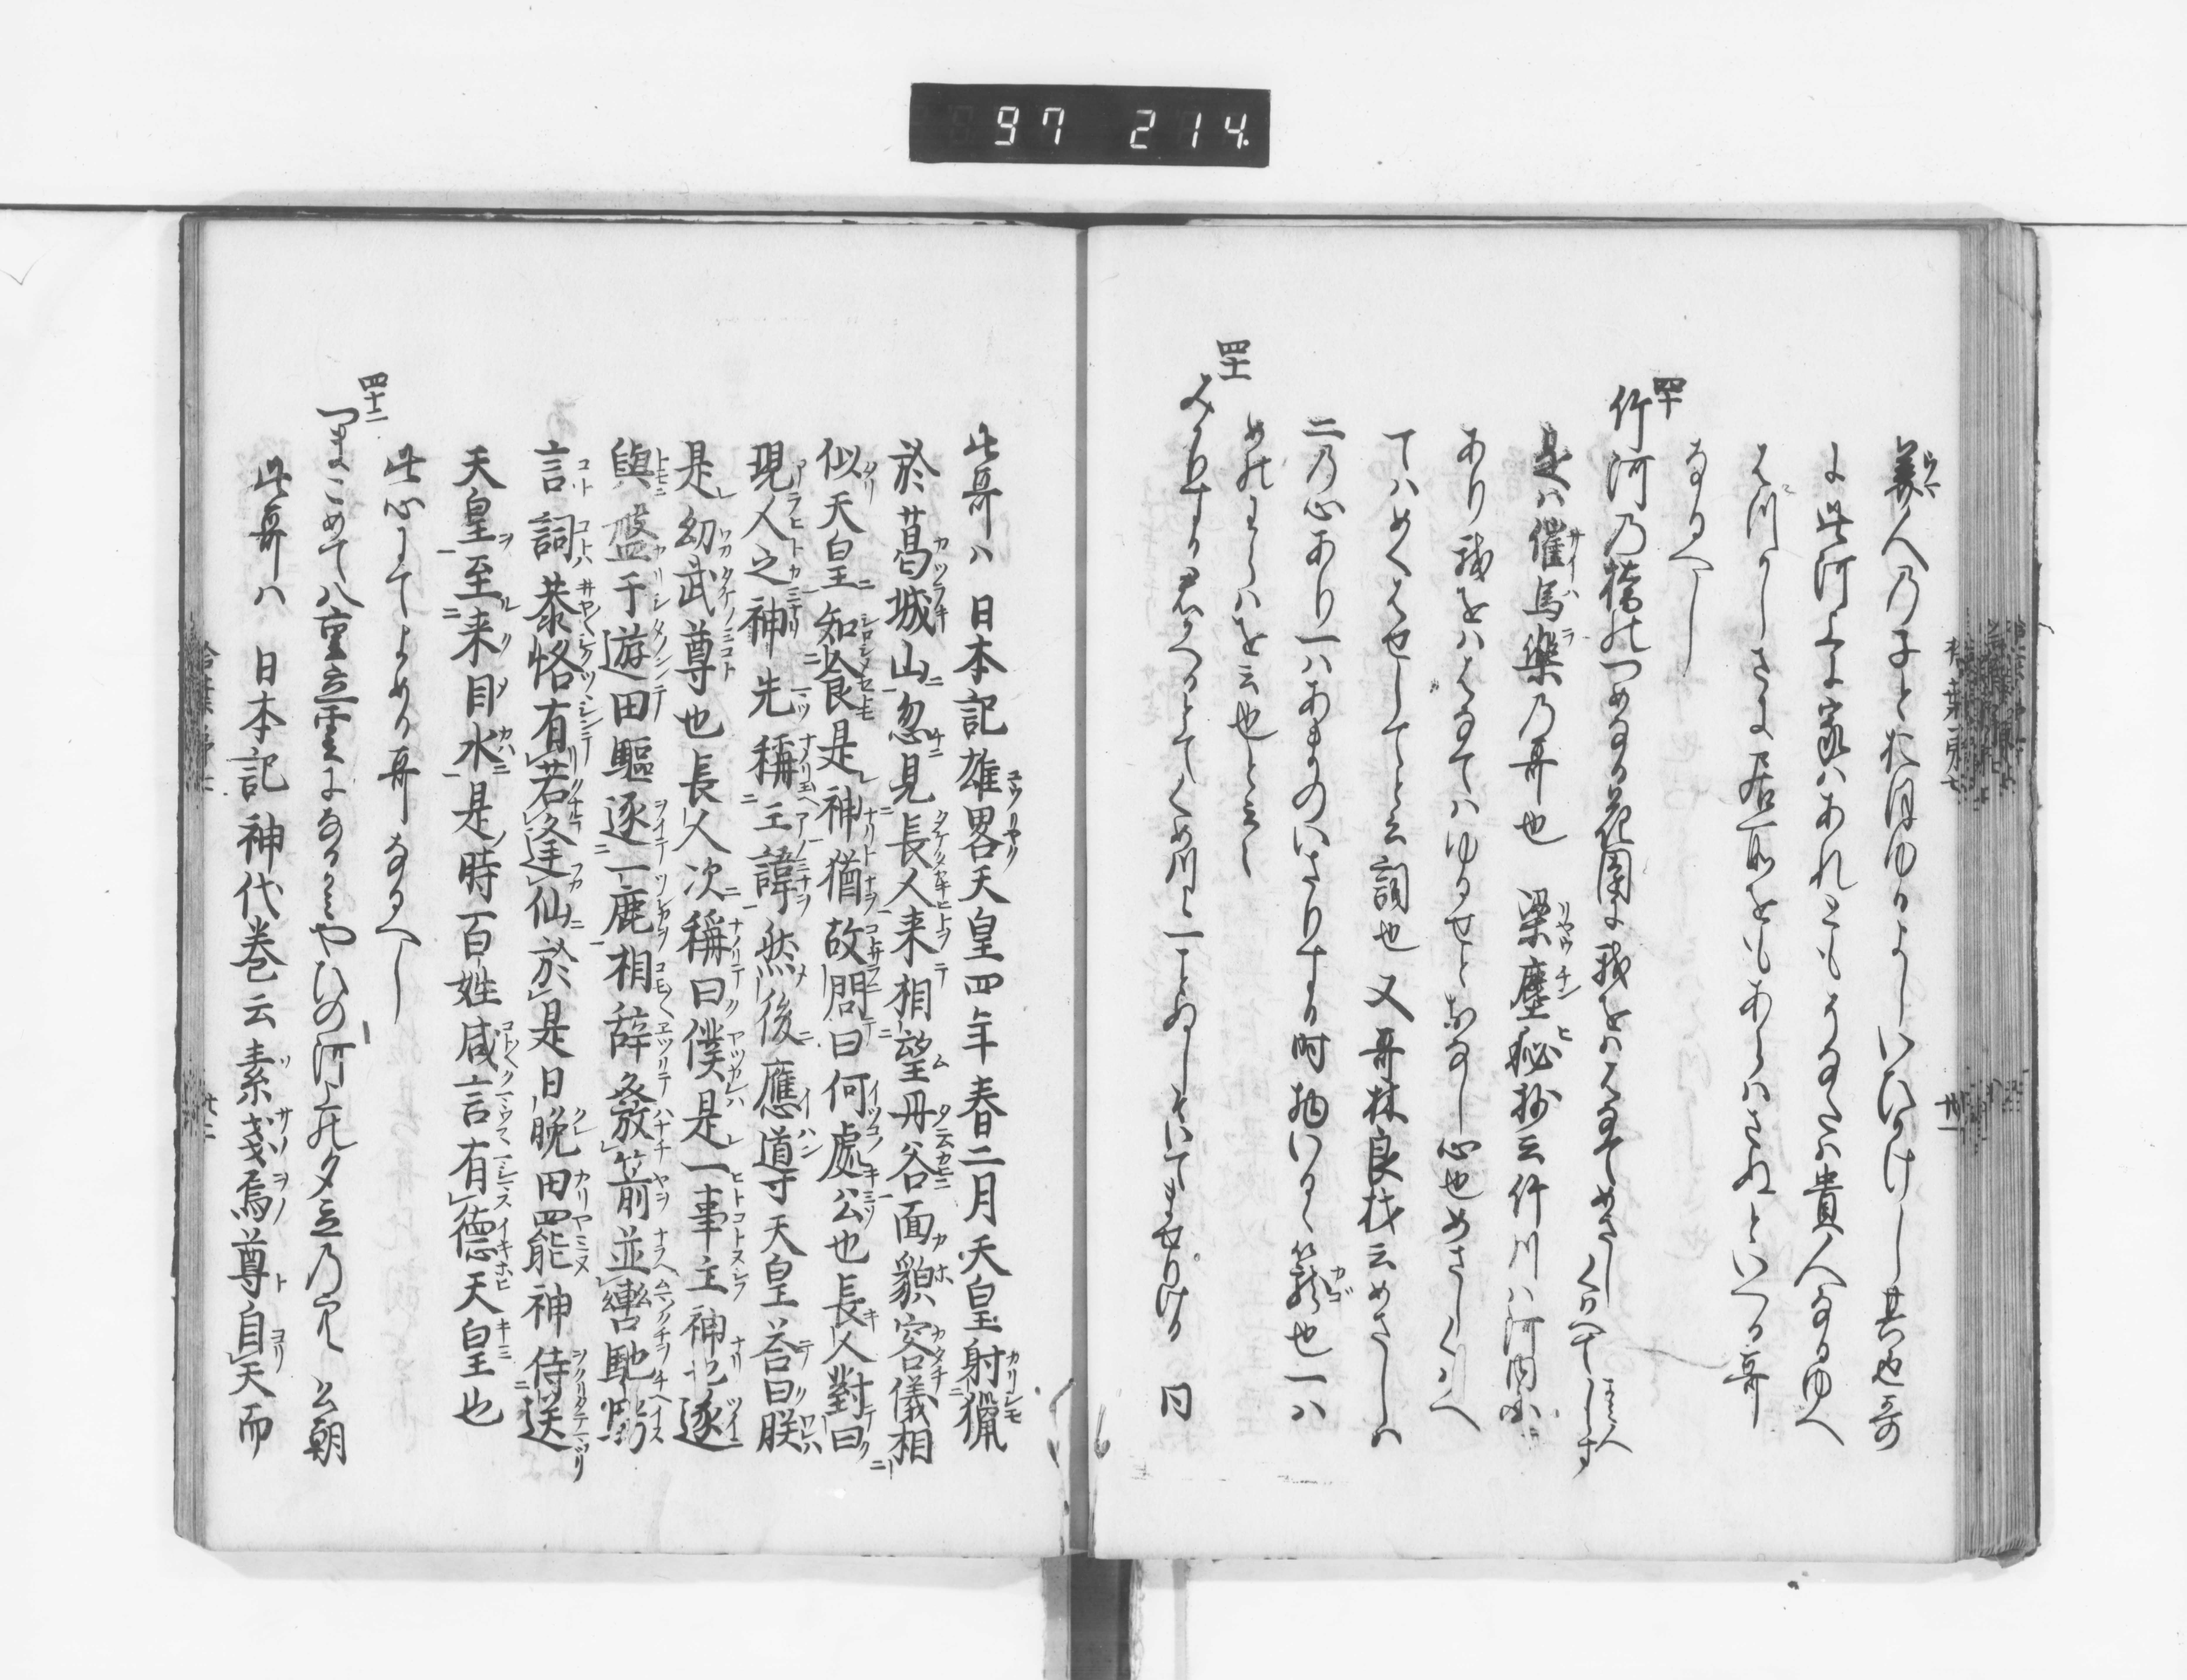 97 214
美人乃子とおほゆるよしいひかけし其返哥
に此河上に家はあれともうるはし貴人なるゆへ
はつかしさに居所をもあらはさぬといへる哥
なるへし
四十
竹河乃橋のつめなる花園に我をはゝなてめさしくはへて
是ハ催馬楽乃哥也 梁塵秘抄云竹川ハ河内国
あり我をハはなてハゆるせと云なし心也めさしくハへ
てハめくハせしてと云詞也又哥林良材云めさしハ
二乃心あり一ハあまのいさりする時物いるゝ籠也一ハ
めのわらハを云也と云々
四十一
みかりする君かへるとてくめ川に一ことぬしそいてませりける 同
此哥ハ日本記雄畧天皇四年春二月天皇射猟
於葛城山忽見長人来相望丹谷面貌容儀相
似天皇知食是神猶故問曰何處公也長人對曰
現人之神先稱王諱然後應噵天皇荅曰朕
是幼武尊也長人次稱曰僕是一事主神也遂
與盤于遊田驅逐一鹿相辞發箭並轡馳騁
言詞恭恪有若逢仙於是日晩田罷神侍送
天皇至来目水是時百姓咸言有德天皇也
此心にてよめる哥なるへし
四十二
つまこめて八重立雲になるかミやひの河上の夕立乃空 公朝
此哥ハ日本記神代巻云素戔烏尊自天而